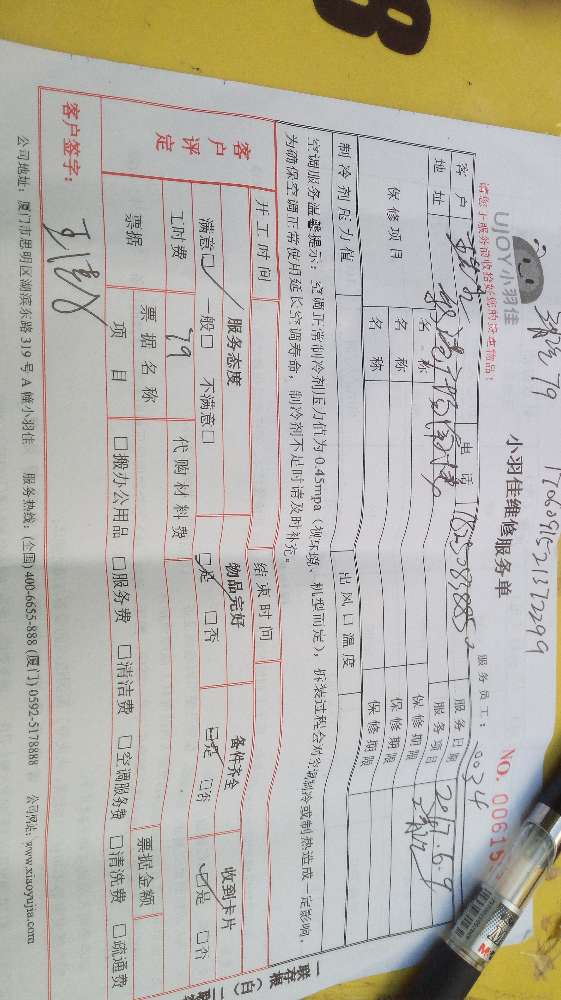 8
清洗 79
1706091521372299
UJOY小羽佳
小羽佳维修服务单
NO. 0061
请您于服务前收检好您的贵重物品!
服务员工: 0034
客户
电话
服务日期 2017.6.9
地址
服务项目 清洗
保修项目 名称 保修期限
名称 保修期限
名称 保修期限
制冷剂压力值 出风口温度
空调服务温馨提示: 空调正常制冷剂压力值为 0.45mpa (视环境、机型而定), 拆装过程会对空调制冷或制热造成一定影响,
为确保空调正常使用延长空调寿命, 制冷剂不足时请及时补充。
开工时间 结束时间
客户评定 服务态度 物品完好 备件齐全 收到卡片
满意☑ 一般□ 不满意□ ☑是 □否 ☑是 □否 ☑是 □否
工时费 79 代购材料费
票据 票据名称 票据金额
项目 □搬办公用品 □服务费 □清洁费 □空调服务费 □清洗费 □疏通费
客户签字:
公司地址: 厦门市思明区湖滨东路 319 号 A 幢小羽佳 服务热线: (全国)400-6655-888 (厦门) 0592-5178888 公司网址: www.xiaoyujia.com
一联存根 (白) 二联